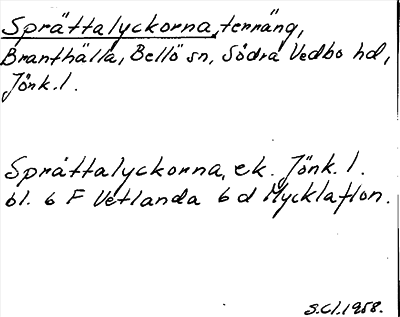 Sprättalyckorna, terräng,
Branthälla, Bellö sn, Södra Vedbo hd,
Jönk.l.
Sprättalyckorna, ek. Jönk. l.
bl. 6 F Vetlanda 6 d Mycklaflon.
S.Cl.1958.